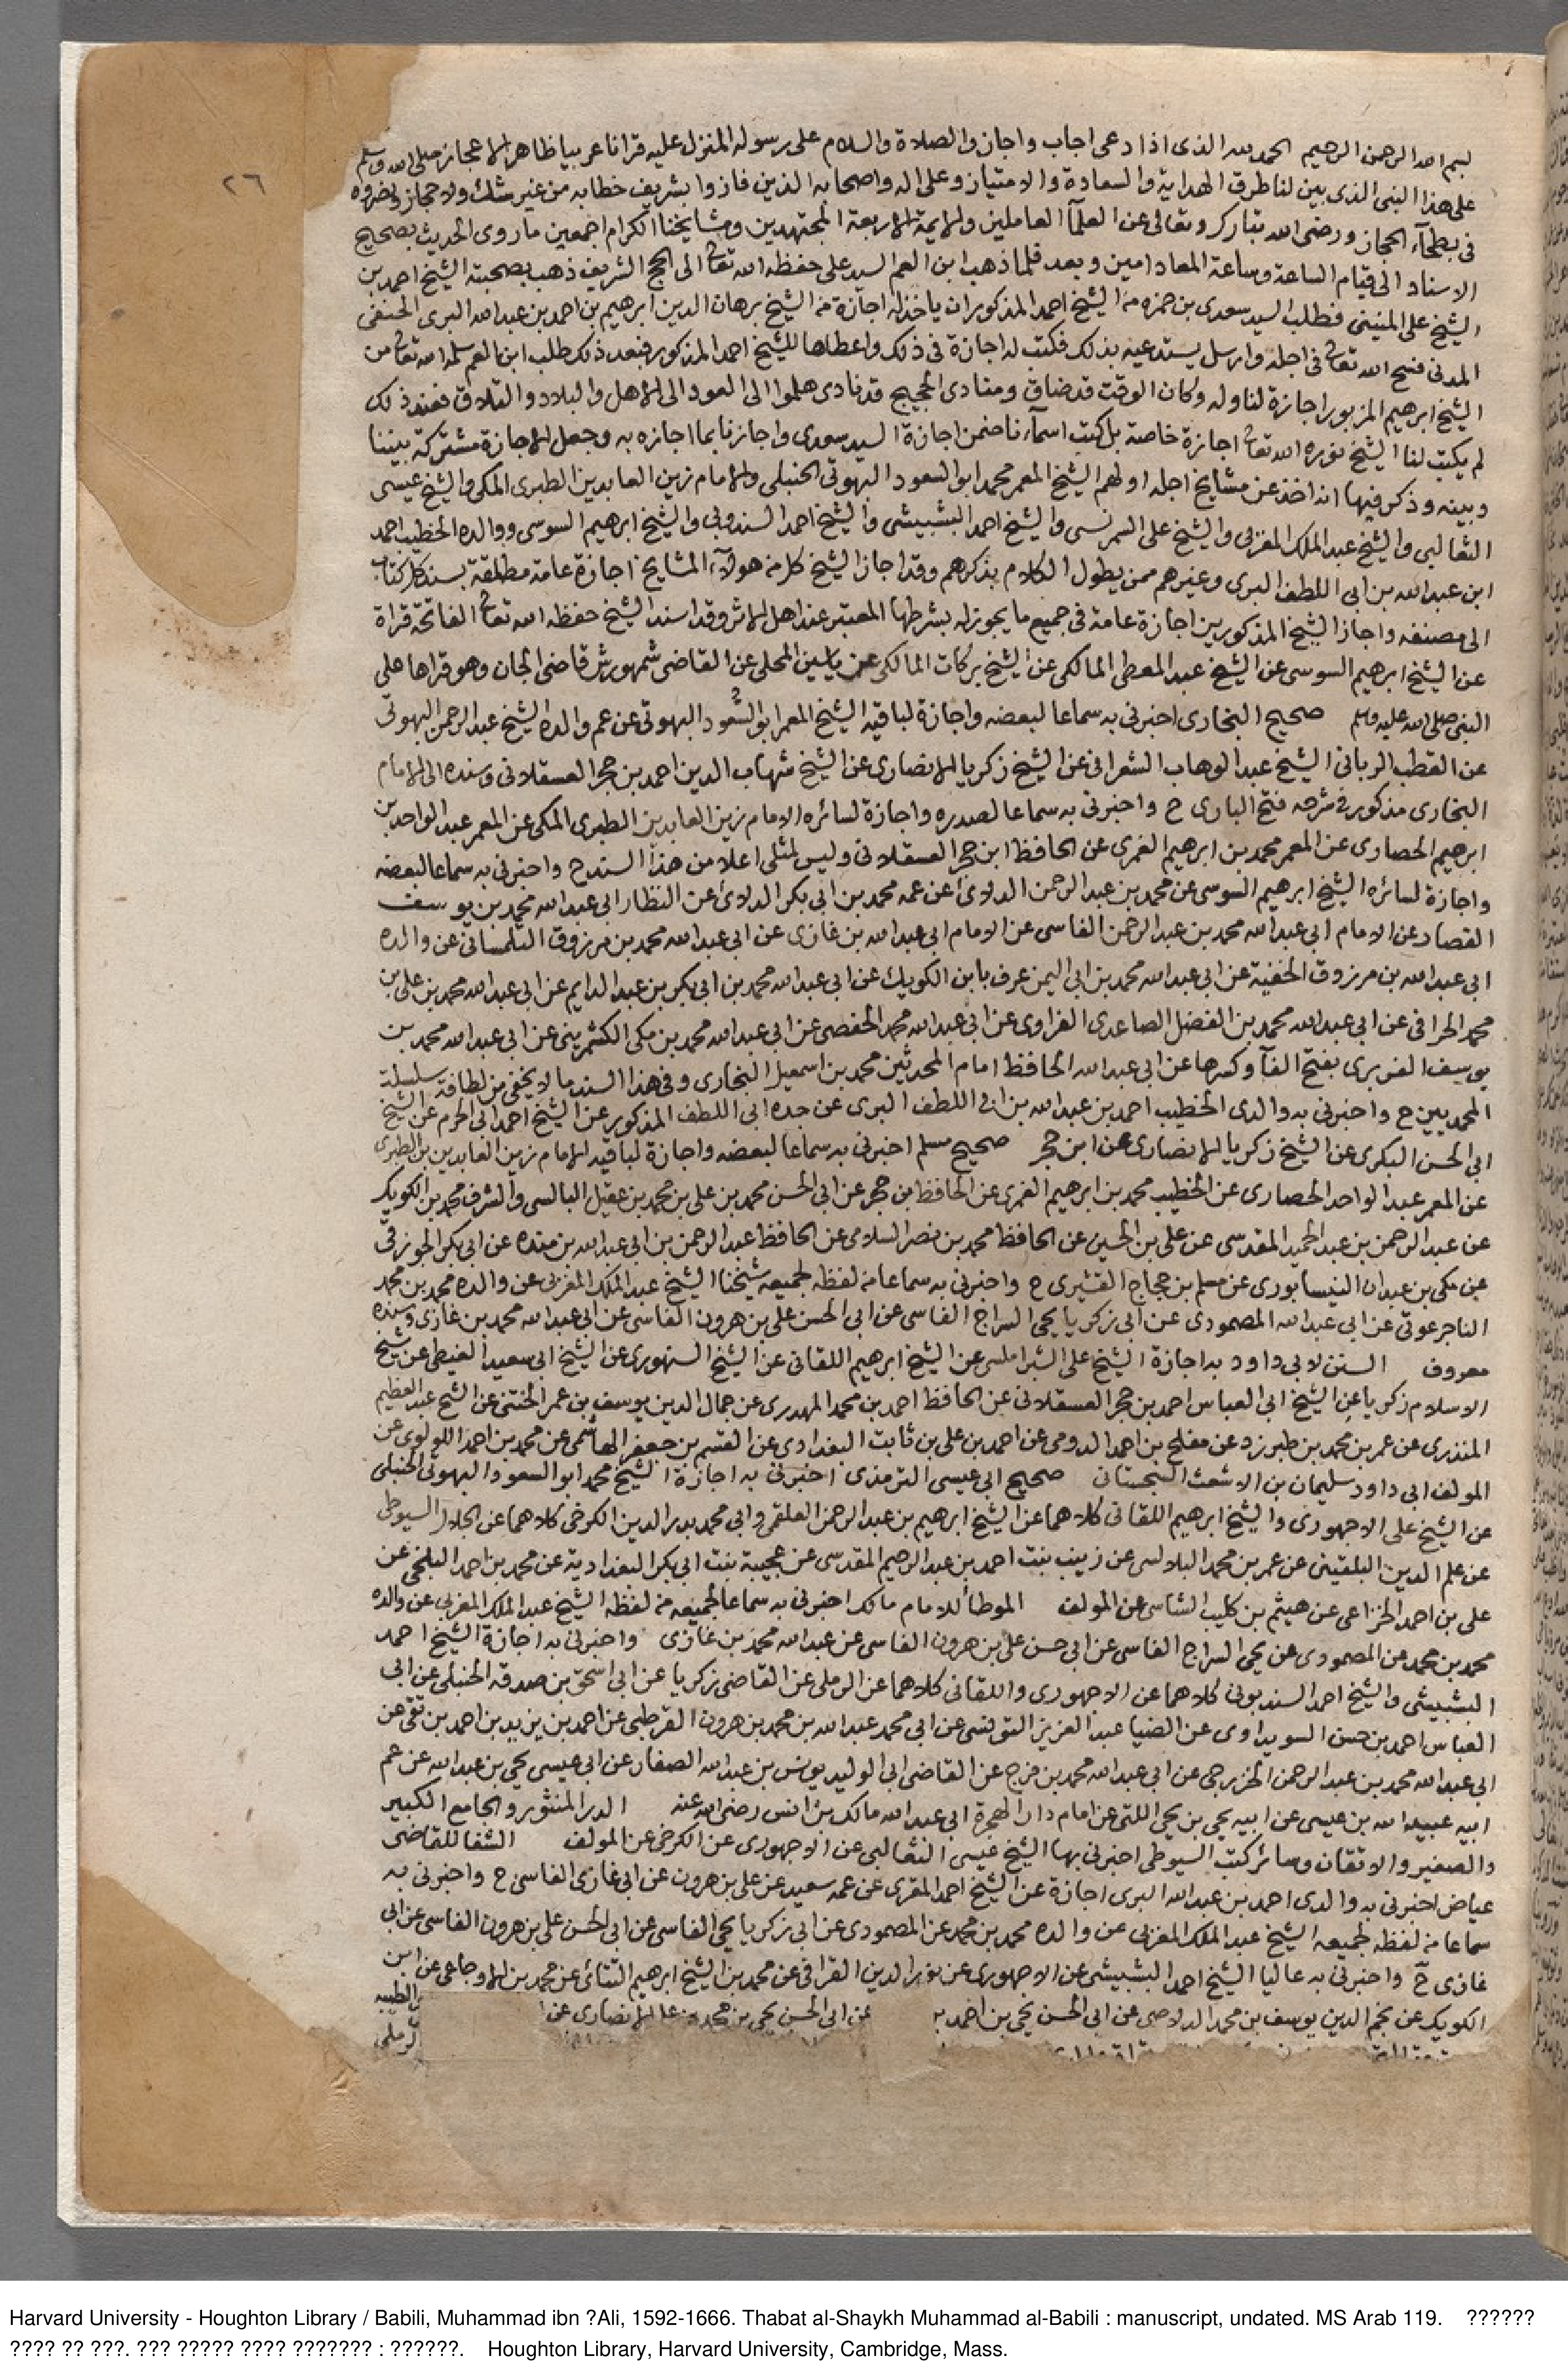 ٢٦
بسم الله الرحمن الرحيم الحمد لله الذى اذا دعى اجاب واجاز والصلاة والسلام على رسوله المنزل عليه قرانا عربيا ظاهر الاعجاز صلى الله وسلم
على هذا النبى الذى بين لنا طرق الهداية والسعادة والامتياز وعلى اله واصحابه الذين فازوا بشريف خطابه من غير شك ولا مجاز
فى بطحآء الحجاز ورضى الله تبارك وتعالى عن العلمآ العاملين والايمة الاربعة المجتهدين ومشايخنا الكرام اجمعين ما روى الحديث بصحيح
الاسناد الى قيام الساعة وساعة المعاد امين وبعد فلما ذهب ابن العم السيد على حفظه الله تعالى الى الحج الشريف ذهب بصحبته الشيخ احمد بن
الشيخ على المنينى فطلب السيد سعدى بن حمزه من الشيخ احمد المذكور ان ياخذ له اجازة من الشيخ برهان الدين ابرهيم بن احمد بن عبد الله البرى الحنفى
المدنى فسح الله تعالى فى اجله وارسل يستدعيه بذلك فكتب له اجازة فى ذلك واعطاها للشيخ احمد المذكور فبعد ذلك طلب ابن العم سلمه الله تعالى من
الشيخ ابرهيم المزبور اجازة لنا وله وكان الوقت قد ضاق ومنادى الحجيج قد نادى هلموا الى العود الى الاهل والبلاد والتلاق فعند ذلك
لم يكتب لنا الشيخ نوره الله تعالى اجازة خاصة بل كتب اسمآءنا ضمن اجازة السيد سعدى واجازنا بما اجازه به وجعل الاجازة مشتركة بيننا
وبينه وذكر فيها انه اخذ عن مشايخ اجله اولهم الشيخ المعمر محمد ابو السعود البهوتى الحنبلى والامام زين العابدين الطبرى المكى والشيخ عيسى
الثعالبى والشيخ عبد الملك المغربى والشيخ على الشبرنسى والشيخ احمد البشبيشى والشيخ احمد السندوبى والشيخ ابرهيم السوسى ووالده الخطيب احمد
ابن عبد الله بن ابى اللطف البرى وغيرهم ممن يطول الكلام بذكرهم وقد اجاز الشيخ كل من هولآء المشايخ اجازة عامة مطلقة بسند كل كتاب
الى مصنفه واجاز الشيخ المذكورين اجازة عامة فى جميع ما يجوز له بشرطها المعتبر عند اهل الاثر وقد اسند الشيخ حفظه الله تعالى الفاتحة قراة
عن الشيخ ابرهيم السوسى عن الشيخ عبد المعطى المالكى عن الشيخ بركات المالكى عن ياسين المحلى عن القاضى شمهورش قاضى الجان وهو قراها على
النبى صلى الله عليه وسلم صحيح البخارى اخبرنى به سماعا لبعضه واجازة لباقيه الشيخ المعمر ابو السعود البهوتى عن عم والده الشيخ عبد الرحمن البهوتى
عن القطب الربانى الشيخ عبد الوهاب الشعرانى عن الشيخ زكريا الانصارى عن الشيخ شهاب الدين احمد بن حجر العسقلانى وسنده الى الامام
البخارى مذكور فى شرحه فتح البارى ح واخبرنى به سماعا لصدره واجازة لسائره الامام زين العابدين الطبرى المكى عن المعمر عبد الواحد بن
ابرهيم الحصارى عن المعمر محمد بن ابرهيم الغمرى عن الحافظ ابن حجر العسقلانى وليس لمثلى اعلا من هذا السند ح واخبرنى به سماعا لبعضه
واجازة لسائره الشيخ ابرهيم السوسى عن محمد بن عبد الرحمن الدلاى عن عمه محمد بن ابى بكر الدلاى عن النظار ابى عبد الله محمد بن يوسف
القصار عن الامام ابى عبد الله محمد بن عبد الرحمن الفاسى عن الامام ابى عبد الله بن غازى عن ابى عبد الله محمد بن مرزوق التلمسانى عن والده
ابى عبد الله بن مرزوق الحفيد عن ابى عبد الله محمد بن ابى اليمن عرف بابن الكويك عن ابى عبد الله محمد بن ابى بكر بن عبد الدايم عن ابى عبد الله محمد بن على بن
محمد الحرانى عن ابى عبد الله محمد بن الفضل الصاعدى الفراوى عن ابى عبد الله محمد الحفصى عن ابى عبد الله محمد بن مكى الكشمرينى عن ابى عبد الله محمد بن
يوسف الفربرى بفتح الفآ وكسرها عن ابى عبد الله الحافظ امام المحدثين محمد بن اسمعيل البخارى وفى هذا السند ما لا يخفى من لطافة سلسلة
المحمديين ح واخبرنى به والدى الخطيب احمد بن عبد الله بن ابى اللطف البرى عن جده ابى اللطف المذكور عن الشيخ احمد ابى الحرم عن الشيخ
ابى الحسن البكرى عن الشيخ زكريا الانصارى عن ابن حجر صحيح مسلم اخبرنى به سماعا لبعضه واجازة لباقيه الامام زين العابدين بن الطبرى
عن المعمر عبد الواحد الحصارى عن الخطيب محمد بن ابرهيم الغمرى عن الحافظ ابن حجر عن ابى الحسن محمد بن على بن محمد بن عقيل البالسى والشرف محمد بن الكويك
عن عبد الرحمن بن عبد الحميد المقدسى عن على بن الحسين عن الحافظ محمد بن نصر السلامى عن الحافظ عبد الرحمن بن ابى عبد الله بن منده عن ابى بكر الجوزقى
عن مكى بن عبدان النيسابورى عن مسلم بن حجاج القشيرى ح واخبرنى به سماعا من لفظه لجميعه شيخنا الشيخ عبد الملك المغربى عن والده محمد بن محمد
التاجرعوتى عن ابى عبد الله المصمودى عن ابى زكريا يحيى السراج الفاسى عن ابى الحسن على بن هرون الفاسى عن ابى عبد الله محمد بن غازى وسنده
معروف السنن لابى داود به اجازة الشيخ على الشبراملسى عن الشيخ ابرهيم اللقانى عن الشيخ السنهورى عن الشيخ ابى سعيد الغيطى عن شيخ
الاسلام زكريا عن الشيخ ابى العباس احمد بن حجر العسقلانى عن الحافظ احمد بن محمد المهدرى عن جمال الدين يوسف بن عمر الختنى عن الشيخ عبد العظيم
المنذرى عن عمر بن محمد بن طبرزد عن مفلح بن احمد الدومى عن احمد بن على بن ثابت البغدادى عن القسم بن جعفر الهاشمى عن محمد بن احمد اللولوى عن
المولف ابى داود سليمان بن الاشعث السجستانى صحيح ابى عيسى الترمذى اخبرنى به اجازة الشيخ محمد ابو السعود البهوتى الحنبلى
عن الشيخ على الاجهورى والشيخ ابرهيم اللقانى كلاهما عن الشيخ ابرهيم بن عبد الرحمن العلقمى وابى محمد بدر الدين الكرخى كلاهما عن الجلال السيوطى
عن علم الدين البلقينى عن عمر بن محمد البلالسى عن زينب بنت احمد بن عبد الرحيم المقدسى عن عجيبة بنت ابى بكر البغدادية عن محمد بن احمد البلخى عن
على بن احمد الخزاعى عن هيثم بن كليب الشاسى عن المولف الموطأ للامام مالك اخبرنى به سماعا لجميعه من لفظه الشيخ عبد الملك المغربى عن والده
محمد بن محمد عن المصمودى عن يحيى السراج الفاسى عن ابى حسن على بن هرون الفاسى عن عبد الله محمد بن غازى واخبرنى به اجازة الشيخ احمد
البشبيشى والشيخ احمد السندبونى كلاهما عن الاجهورى واللقانى كلاهما عن الرملى عن القاضى زكريا عن ابى اسحق بن صدقه الحنبلى عن ابى
العباس احمد بن حسن السويداوى عن الضيا عبد العزيز التونسى عن ابى محمد عبد الله بن محمد بن هرون القرطبى عن احمد بن يزيد بن احمد بن تقى عن
ابى عبد الله محمد بن عبد الرحمن الخزرجى عن ابى عبد الله محمد بن فرج عن القاضى ابى الوليد يونس بن عبد الله الصفار عن ابى عيسى يحيى بن عبد الله عن عم
ابيه عبيد الله بن عيسى عن ابيه يحيى بن يحيى اللثى عن امام دار الهجرة ابى عبد الله مالك بن انس رضى الله عنه الدر المنثور والجامع الكبير
والصغير والاتقان وسائر كتب السيوطى اخبرنى بها الشيخ عيسى الثعالبى عن الاجهورى عن الكرخى عن المولف الشفا للقاضى
عياض اخبرنى به والدى احمد بن عبد الله البرى اجازة عن الشيخ احمد المقرى عن عمه سعيد عن على بن هرون عن ابى غازى الفاسى ح واخبرنى به
سماعا من لفظه لجميعه الشيخ عبد الملك المغربى عن والده محمد بن محمد عن المصمودى عن ابى زكريا يحيى الفاسى عن ابى الحسن على بن هرون الفاسى عن ابى
غازى ح واخبرنى به عاليا الشيخ احمد البشبيشى عن الاجهورى عن نور الدين القرافى عن محمد بن الشيخ ابرهيم التتائى عن محمد بن الاوجاعى عن ابن
الكويك عن نجم الدين يوسف بن محمد الدلاصى عن ابى الحسن يحيى بن احمد عن ابى الحسن يحيى بن محمد بن على الانصارى عن
الرملى
Harvard University - Houghton Library / Babili, Muhammad ibn ?Ali, 1592-1666. Thabat al-Shaykh Muhammad al-Babili : manuscript, undated. MS Arab 119. ??????
???? ?? ???. ??? ????? ???? ??????? : ??????. Houghton Library, Harvard University, Cambridge, Mass.